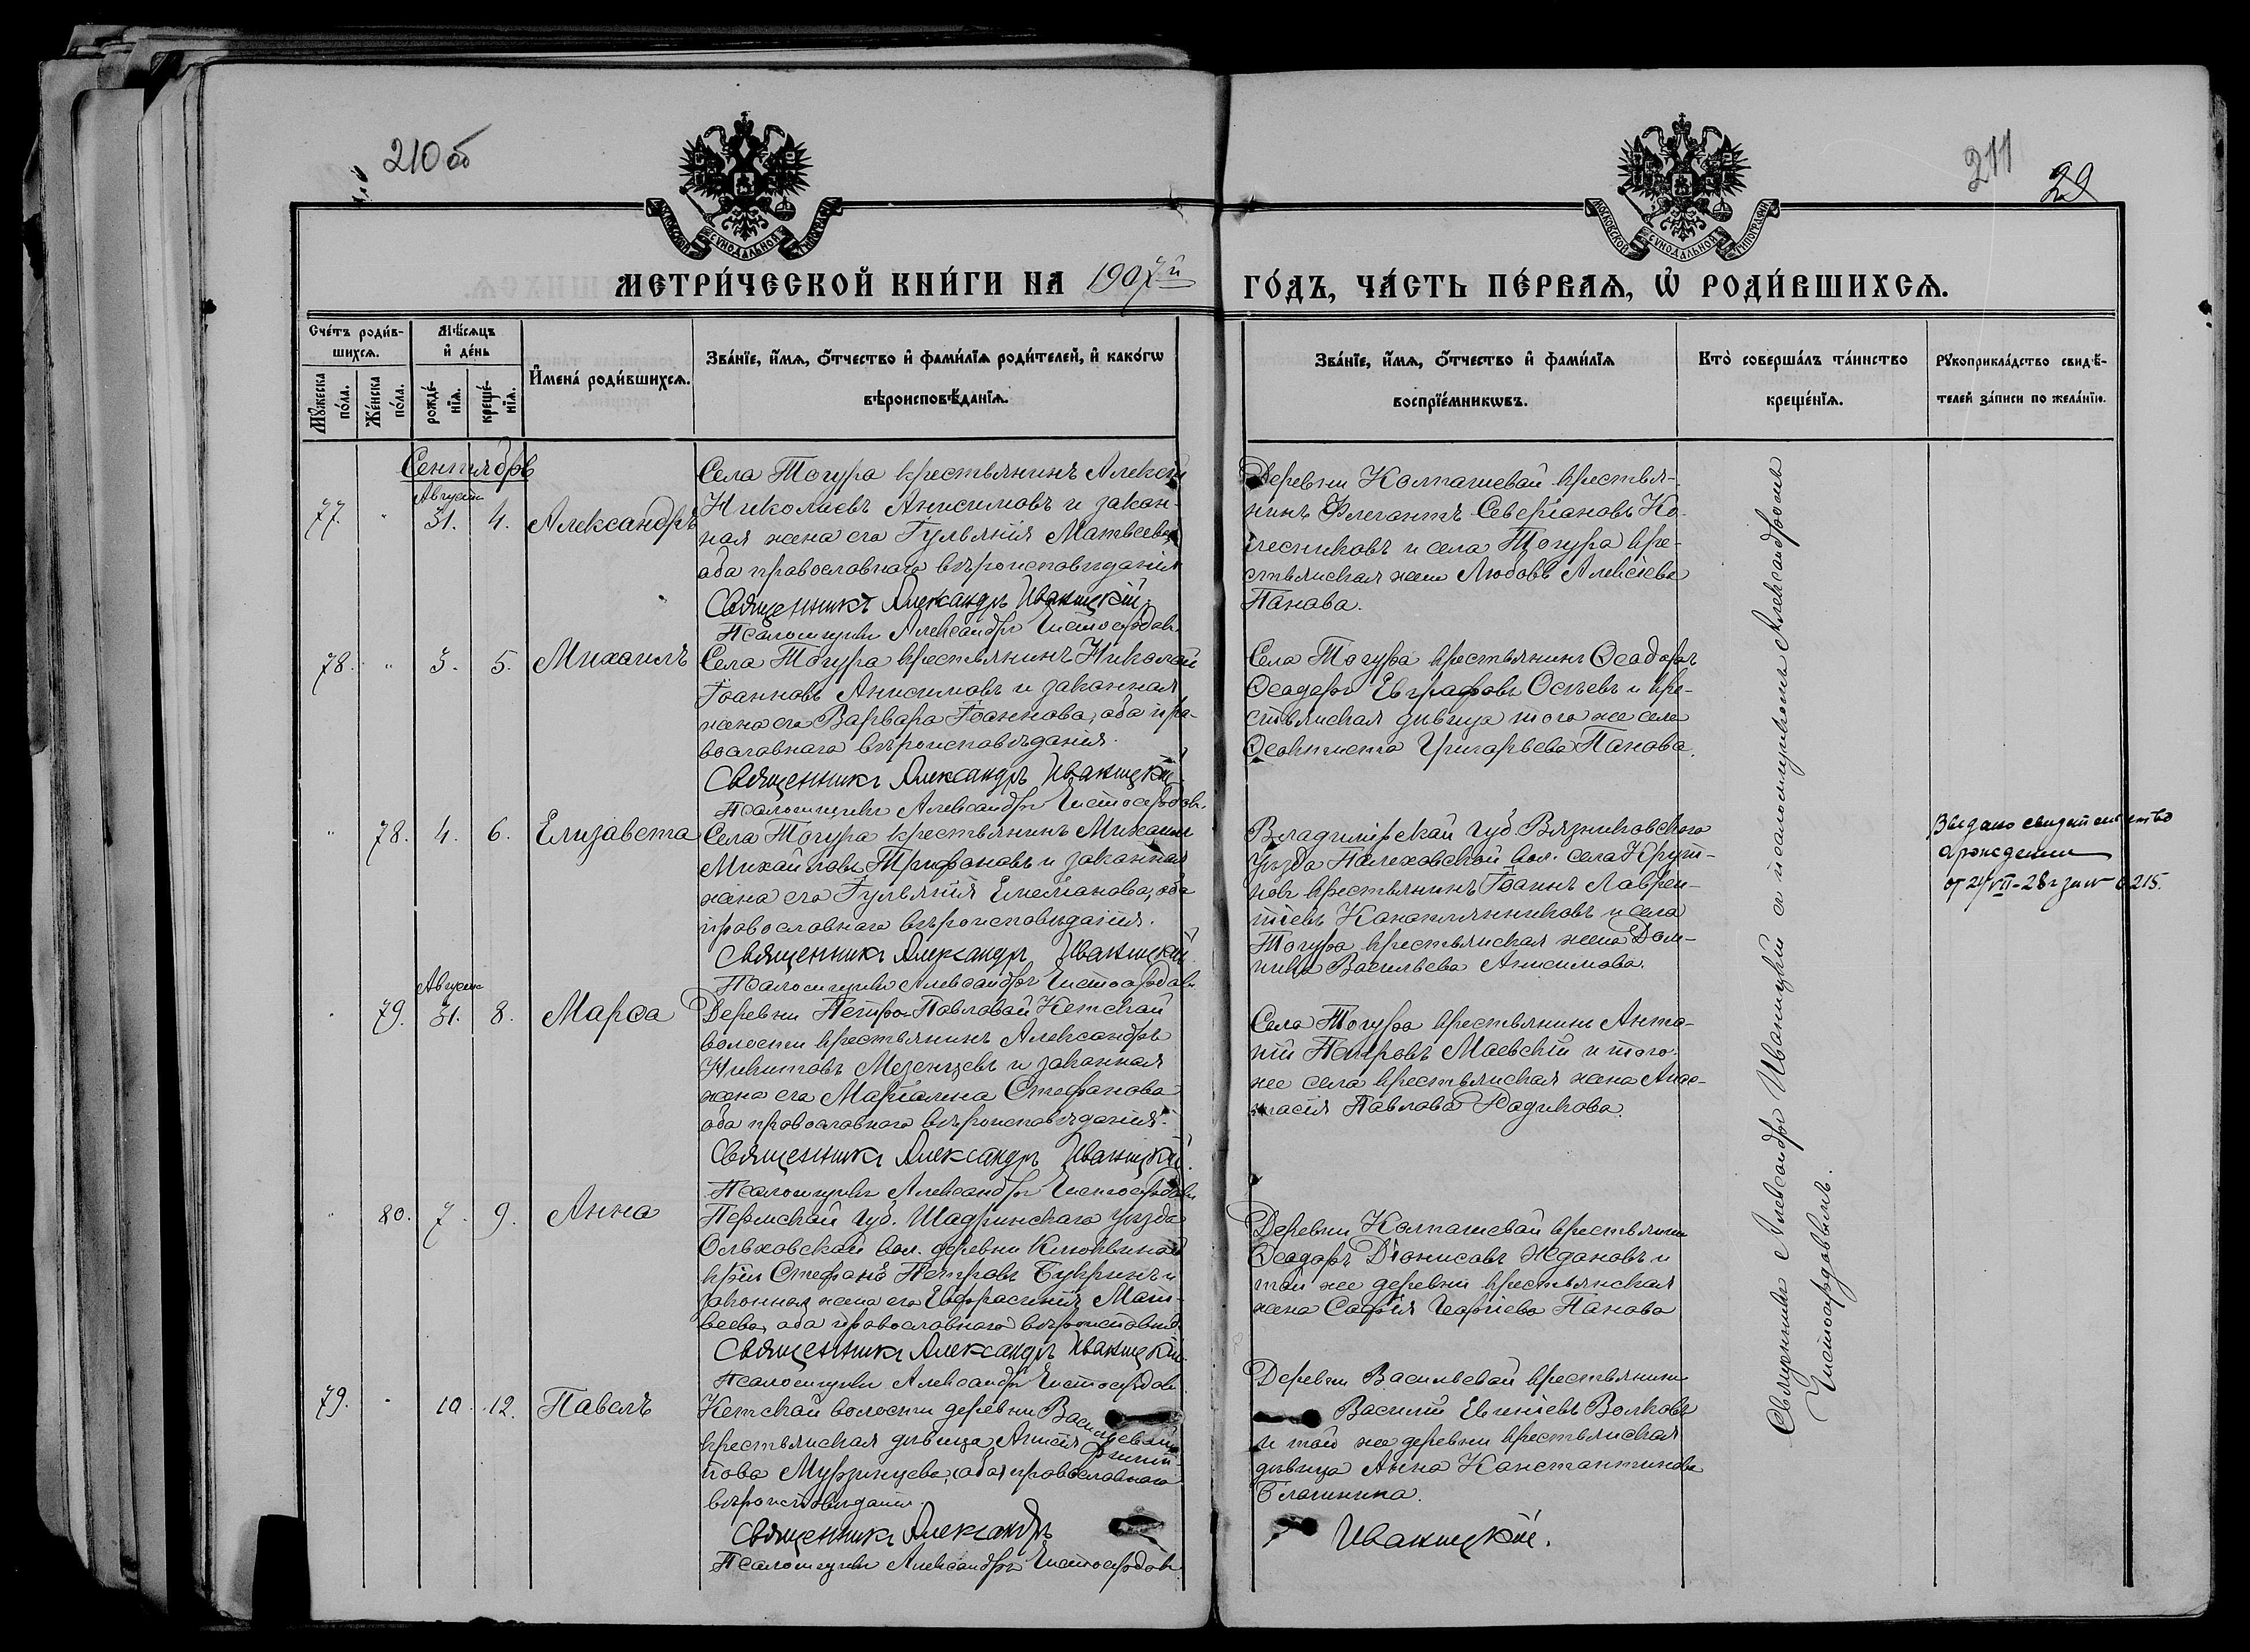 210 об
211
29
МОСКОВСКОЙ СУНОДАЛЬНОЙ ТИПОГРАФІИ
МОСКОВСКОЙ СУНОДАЛЬНОЙ ТИПОГРАФІИ
МЕТРИ́ЧЕСКОЙ КНИ́ГИ НА 1907й ГО́ДЪ, ЧА́СТЬ ПЕ́РВАѦ, Ѡ҆ РОДИ́ВШИХСѦ.
Сче́тъ роди́в-
шихсѧ.
Мꙋ́жеска
по́ла.
Же́нска
по́ла.
Мѣ́сѧцъ
и҆ де́нь
рожде́-
нїѧ.
креще́-
нїѧ.
И҆мена̀ роди́вшихсѧ.
Зва́нїе, и҆́мѧ, ѻ҆́тчество и҆ фами́лїѧ роди́телей, и҆ како́гѡ
вѣроисповѣ́данїѧ.
Зва́нїе, и҆́мѧ, ѻ҆́тчество и҆ фами́лїѧ
воспрїе́мникѡвъ.
Кто̀ соверша́лъ та́инство
креще́нїѧ.
Рꙋкоприкла́дство свидѣ́-
телей за́писи по жела́нїю.
Сентябрь
77. " Августа 31. 4. Александръ
Села Тогура крестьянинъ Алексѣй
Николаевъ Анисимовъ и закон-
ная жена его Іульянія Матвеева,
оба православнаго вѣроисповѣданія
Священникъ Александръ Иваницкій.
Псаломщикъ Александръ Чистосердовъ.
Деревни Колпашевой крестья-
нинъ Флегонтъ Северіановъ Ко-
лесниковъ и села Тогура кре-
стьянская жена Любовь Алексѣева
Панова.
78. " 3. 5. Михаилъ
Села Тогура крестьянинъ Николай
Іоанновъ Анисимовъ и законная
жена его Варвара Іоаннова, оба пра-
вославнаго вѣроисповѣданія.
Священникъ Александръ Иваницкій
Псаломщикъ Александръ Чистосердовъ.
Села Тогура крестьянинъ Ѳеодоръ
Ѳеодоръ Евграфовъ Осѣевъ и кре-
стьянская дѣвица того же села
Ѳеоктиста Григорьева Панова.
" 78. 4. 6. Елизавета
Села Тогура крестьянинъ Михаилъ
Михайловъ Трифоновъ и законная
жена его Іульянія Емеліанова, оба
православнаго вѣроисповѣданія.
Священникъ Александръ Иваницкій
Псаломщикъ Александръ Чистосердовъ.
Владимірской губ. Вязниковского
уѣзда Палеховской вол. села Крут-
цовъ крестьянинъ Іоаннъ Лаврен-
тіевъ Коноплянниковъ и села
Тогура крестьянская жена Дом-
ника Васильева Анисимова.
Выдано свидѣтельство
о рождении
от 24/VII-28 г за № 6215.
" 79. Августа 31. 8. Марѳа
Деревни Петро-Павловой Кетской
волости крестьянинъ Александръ
Никитовъ Мезенцевъ и законная
жена его Маріамна Стефанова
оба православнаго вѣроисповѣданія.
Священникъ Александръ Иваницкій.
Псаломщикъ Александръ Чистосердовъ
Села Тогура крестьянинъ Анто-
ній Петровъ Маевскій и того-
же села крестьянская жена Анас-
тасія Павлова Родикова.
" 80. 7. 9. Анна
Пермской губ. Шадринскаго уѣзда
Ольховской вол. деревни Клюквиной
кр-нъ Стефанъ Петровъ Букринъ и
законная жена его Евфрасинія Мат-
веева, оба православнаго вѣроисповѣд.
Священникъ Александръ Иваницкій.
Псаломщикъ Александръ Чистосердовъ
Деревни Колпашевой крестьянинъ
Ѳеодоръ Діонисовъ Ждановъ и
той же деревни крестьянская
жена Софія Георгіева Панова
79. " 10. 12. Павелъ
Кетской волости деревни Васильевой
крестьянская дѣвица Анисія Филип-
пова Мурзинцева, (оба) православнаго
вѣроисповѣданія.
Священникъ Александръ Иваницкій.
Псаломщикъ Александръ Чистосердовъ
Деревни Васильевой крестьянинъ
Василій Евгеніевъ Волковъ
и той же деревни крестьянская
дѣвица Анна Константинова
Благинина.
Священникъ Александръ Иваницкій съ псаломщикомъ Александромъ
Чистосердовымъ.